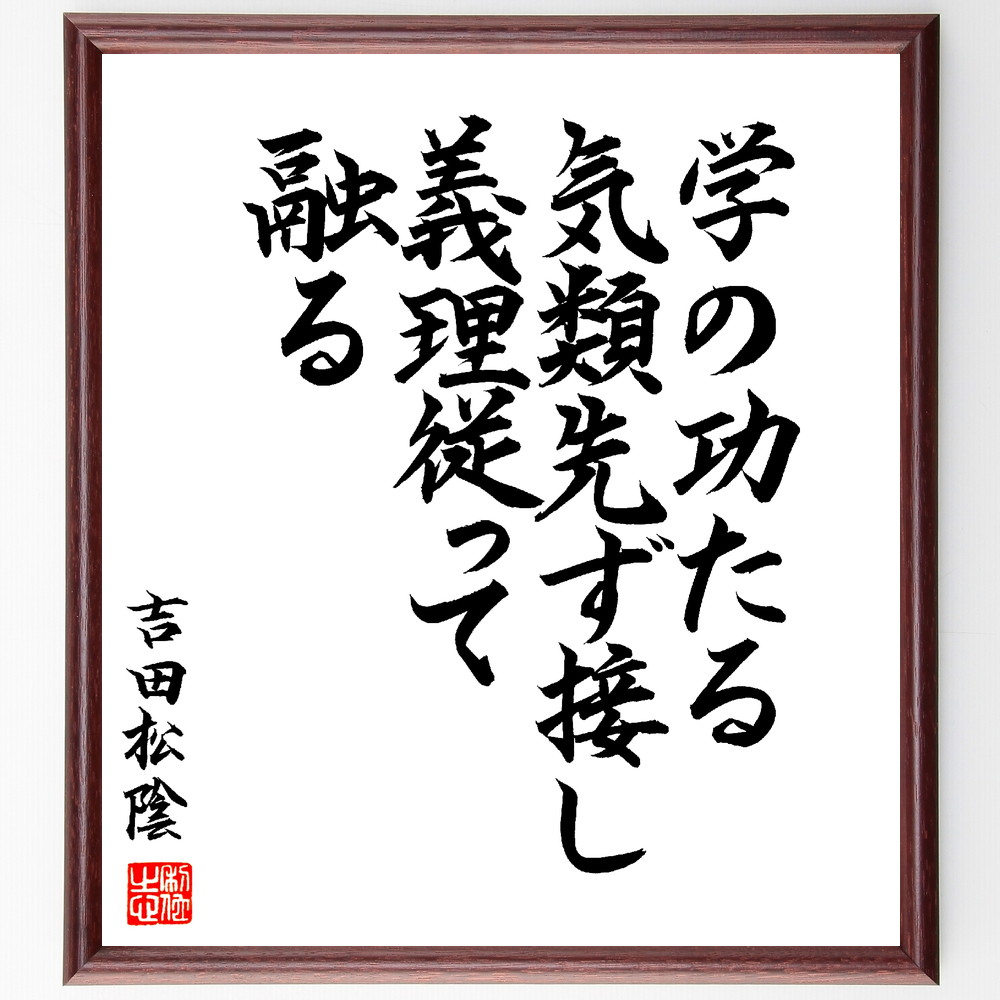 学の功たる
気類先ず接し
義理従って
融る
吉田松陰